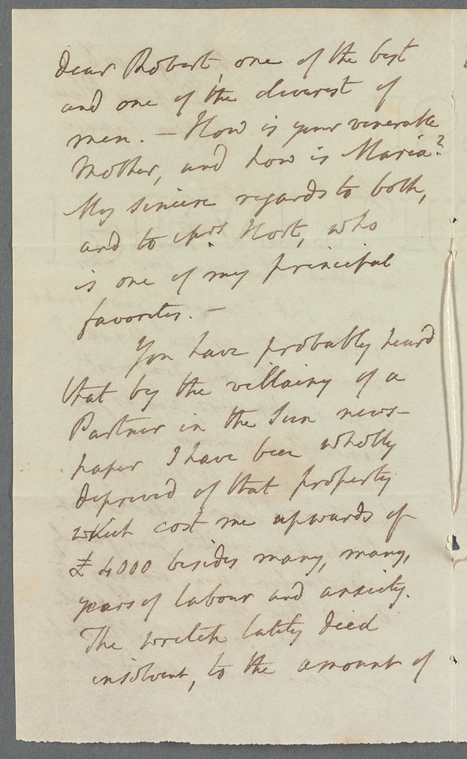 dear Robert, one of the best
and one of the cleverest of
men. — How is your venerable
Mother, and how is Maria?
My sincere regards to both,
and to Mrs. Hort, who
is one of my principal
favorites. —
You have probably heard
that by the villainy of a
Partner in the Sun news-
paper I have been wholly
deprived of that property
which cost me upwards of
£4000 besides many, many,
years of labour and anxiety.
The wretch lately died
insolvent, to the amount of